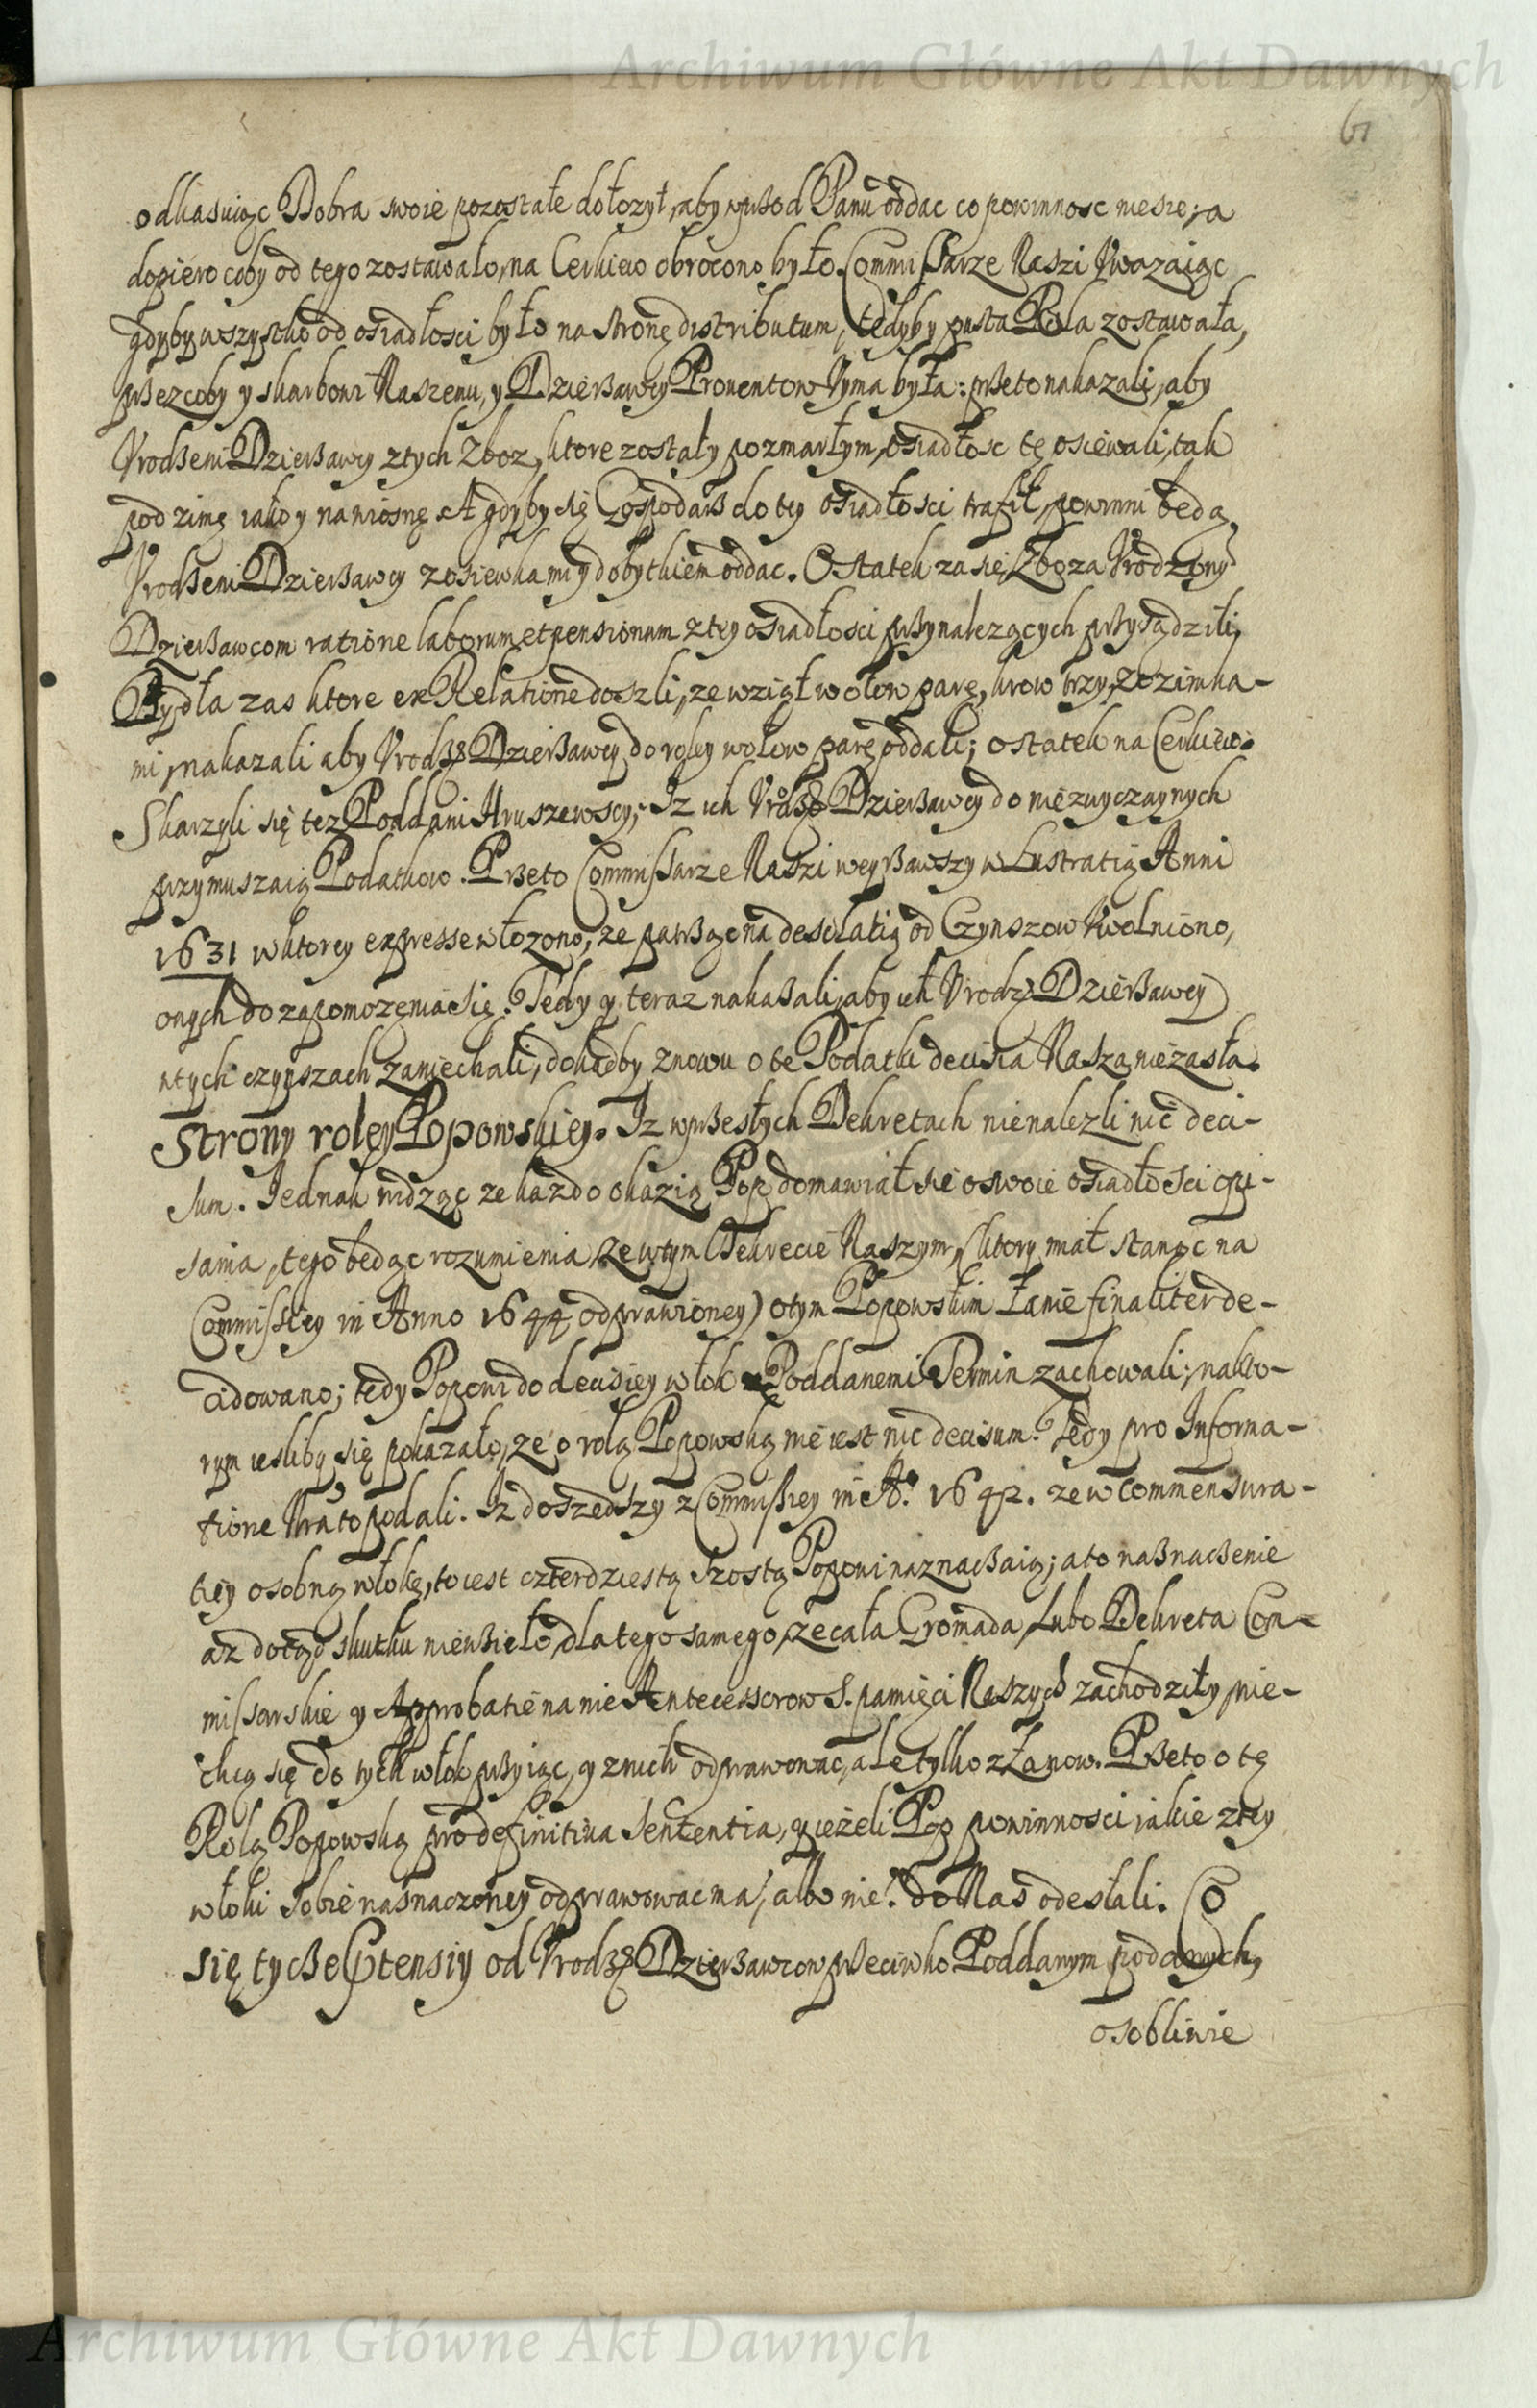 Archiwum Główne Akt Dawnych
61
odkasuiąc Dobra swoie pozostałe dołozył, aby wprzod Panu oddac co powinnosc niesie; a
dopiero coby od tego zostawało, na Cerkiew obrocono było. Commissarze Naszi Vwazaiąc
gdyby wszystko od osiadłosci było na stronę distributum, tedyby pusta Rola zostawała,
przez coby y skarbowi Naszemu, y Dzierżawcy Prouentow Vyma była: przeto nakazali, aby
Vrodzeni Dzierżawcy z tych Zboz, ktore zostały po zmarłym, osiadłosc tę osiewali, tak
pod zimę iako y na wiosnę. A gdyby się Gospodarz do tey osiadłosci trafił, powinni będą
Vrodzeni Dzierżawcy z osiewkami y dobytkiem oddac. Ostatek zasię Zboza Vrodzony
Dzierżawcom ratione laborum et pensionum z tey osiadłosci przynalezących przysądzili,
Bydła zas ktore ex Relatione doszli, ze wziął wołow parę, krow trzy, z ozimka-
mi, nakazali aby Vrodz: Dzierżawcy do roley wołow parę oddali; ostatek na Cerkiew.
Skarzyli się tez Poddani Hruszewscy; Iz ich Vrodz: Dzierżawcy do niezwyczaynych
przymuszaią Podatkow. Przeto Commissarze Naszi weyrzawszy w Lustratią Anni
1631 w ktorey expresse włozono, ze patrząc na desolatią od Czynszow Vwolniono,
onych do zapomozenia się. Tedy y teraz nakazali, aby ich Vrodz: Dzierżawcy
w tych czynszach zaniechali, dokądby znowu o te Podatki decisia Nasza nie zasła.
Strony roley Popowskiey. Iz w przesłych Dekretach nie nalezli nic deci-
sum. Iednak widząc ze kazdo okazią Pop domawiał się o swoie osiadłosci opi-
sania, tego będąc rozumienia, ze w tym Dekrecie Naszym, (ktory miał stanąc na
Commissiey in Anno 1644 odprawioney) o tym Popowskim Łanie finaliter de-
cidowano; tedy Popowi do decisiey włok z Poddanemi Termin zachowali; na kto-
rym iesliby się pokazało, ze o rolą Popowską nie iest nic decisum. Tedy pro Informa-
tione Nrã to podali. Iz doszedszy z Commissiey in Aº. 1642. ze w Commensura-
tiey osobną włokę, to iest czterdziestą szostą Popowi naznaczaią; a to naznaczenie
az dotąd skutku nie wzieło, dla tego samego, ze cała Gromada, lubo Dekreta Com-
missarskie y Approbatie na nie Antecessorow S. pamięci Naszych zachodziły, nie-
chcą się do tych włok przyiąc, y z nich odprawowac, ale tylko z Łanow. Przeto o tę
Rolą Popowską pro definitiua Sententia, y iezeli Pop powinnosci iakie z tey
włoki sobie naznaczoney odprawowac ma, albo nie? do Nas odesłali. Co
się tycze Ptensiy od Vrodz: Dzierżawcow przeciwko Poddanym podanych,
osobliwie
Archiwum Główne Akt Dawnych